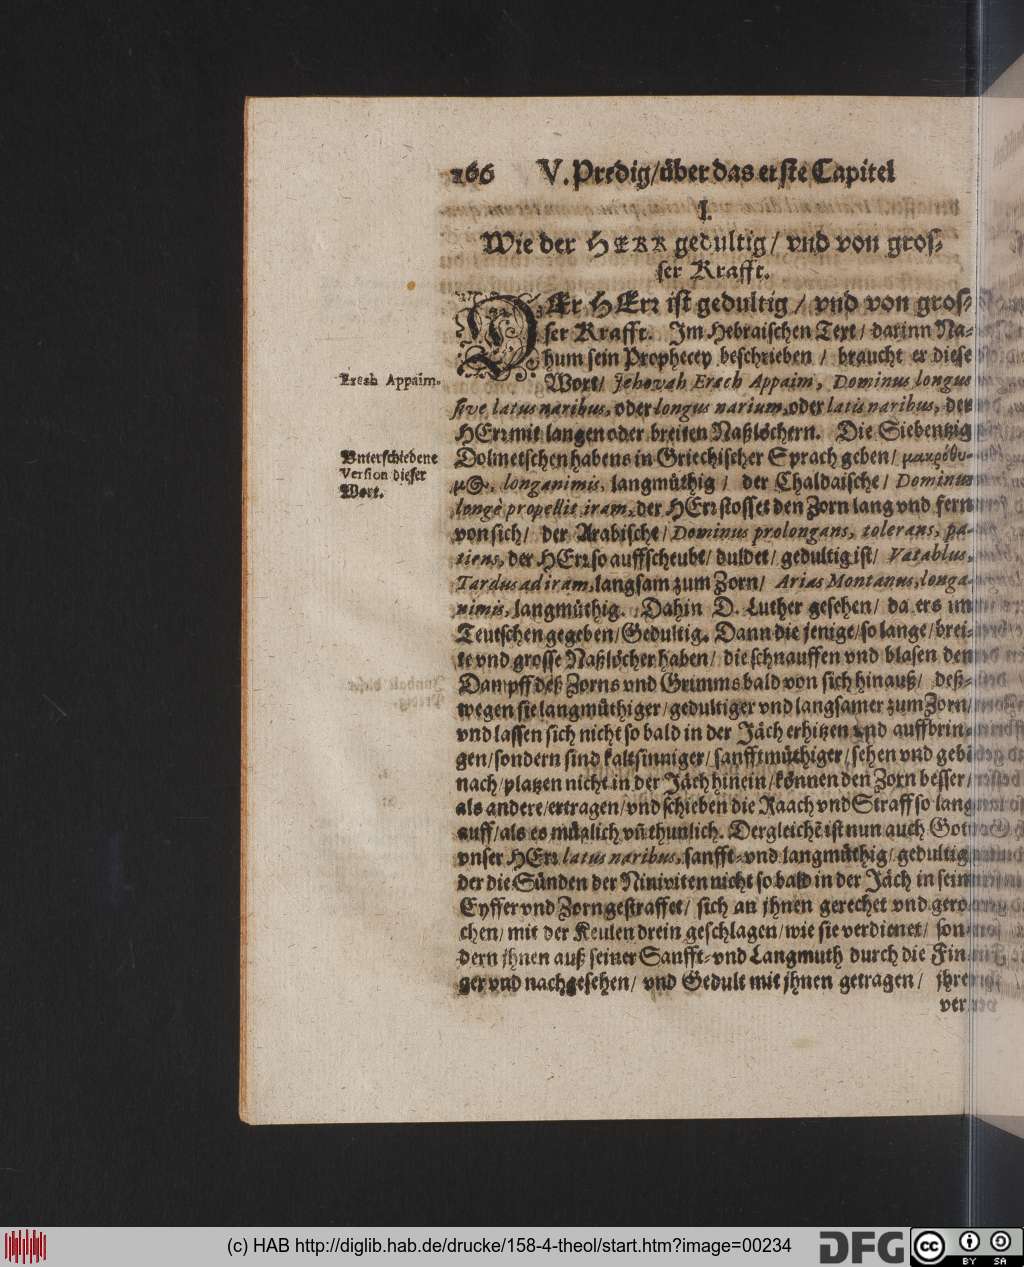 166 V. Predig/über das erste Capitel
I.
Wie der HERR gedultig/ vnd von gros-
ser Krafft.
DEr HErr ist gedultig / vnd von gros-
ser Krafft. Im Hebraischen Text/ darinn Na-
hum sein Prophecey beschrieben / braucht er diese
Wort/ Jehovah Erech Appaim, Dominus longus
sive latus naribus, oder longus narium, oder latis naribus, der
HErr mit langen oder breiten Naßlöchern. Die Siebentzig
Dolmetschen habens in Griechischer Sprach geben/ μακρόθυ-
μ@, longanimis, langmüthig / der Chaldaische/ Dominus
longè propellit iram, der HErr stosset den Zorn lang vnd fern
von sich/ der Arabische/ Dominus prolongans, tolerans, pa-
tiens, der HErr so auffscheubt/ duldet/ gedultig ist/ Vatablus,
Tardus ad iram, langsam zum Zorn/ Arias Montanus, longa-
nimis, langmüthig. Dahin D. Luther gesehen/ da ers im
Teutschen gegeben/ Gedultig. Dann die jenige/ so lange/ brei-
te vnd grosse Naßlöcher haben/ die schnauffen vnd blasen den
Dampff deß Zorns vnd Grimms bald von sich hinauß/ deß-
wegen sie langmüthiger/ gedultiger vnd langsamer zum Zorn/
vnd lassen sich nicht so bald in der Jäch erhitzen vnd auffbrin-
gen/ sondern sind kaltsinniger/ sanfftmüthiger/ sehen vnd geben
nach/ platzen nicht in der Jäch hinein/ können den Zorn besser/
als andere/ ertragen/ vnd schieben die Raach vnd Straff so lang
auff/ als es müglich vñ thunlich. Dergleichẽ ist nun auch Gott
vnser HErr latus naribus, sanfft- vnd langmüthig/ gedultig
der die Sünden der Niniviten nicht so bald in der Jäch in seim
Eyffer vnd Zorn gestraffet/ sich an jhnen gerechet vnd gero-
chen/ mit der Keulen drein geschlagen/ wie sie verdienet/ son-
dern jhnen auß seiner Sanfft- vnd Langmuth durch die Fin-
ger vnd nachgesehen/ vnd Gedult mit jhnen getragen/ jhre
ver
Eresh Appaim.
Vnterschiedene
Version dieser
Wort.
(c) HAB http://diglib.hab.de/drucke/158-4-theol/start.htm?image=00234
DFG
cc
BY SA